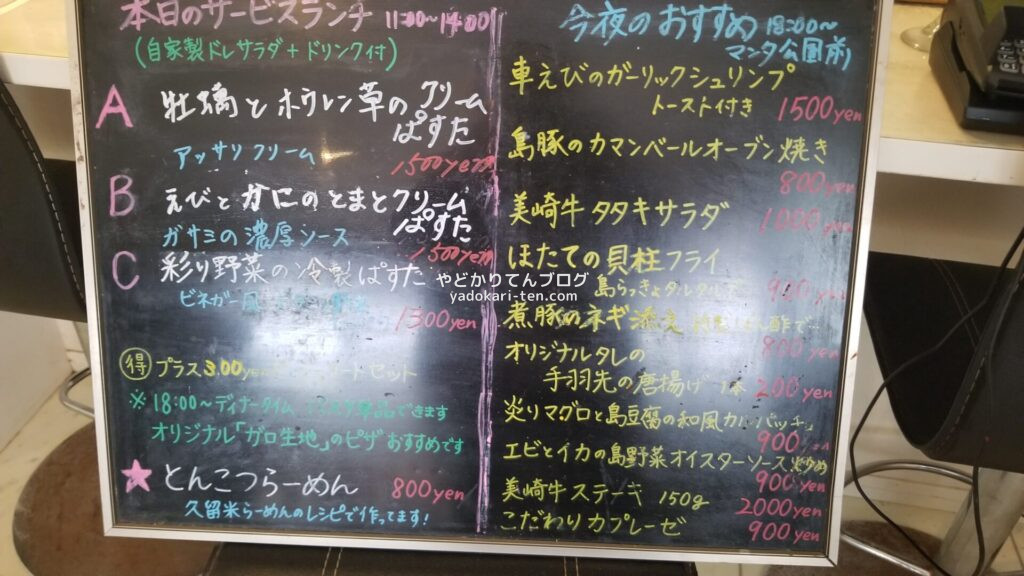 本日のサービスランチ 11:00〜14:00
(自家製ドレサラダ+ドリンク付)
A 牡蠣とホウレン草のクリーム
ぱすた
アッサリクリーム 1500yen
B えびとかにのとまとクリーム
ぱすた
ガサミの濃厚ソース 1500yen
C 彩り野菜の冷製ぱすた
ビネガー風
1300yen
得 プラス300yen セット
※18:00〜ディナータイム できます
オリジナル「ガロ生地」のピザおすすめです
★とんこつらーめん 800yen
久留米らーめんのレシピで作ってます!
今夜のおすすめ 18:00〜
マンタ公園前
車えびのガーリックシュリンプ
トースト付き 1500yen
島豚のカマンベールオーブン焼き
800yen
美崎牛タタキサラダ 1000yen
ほたての貝柱フライ
島らっきょタルタル
煮豚のネギ
800yen
オリジナルタレの
手羽先の唐揚げ 1本 200yen
炙りマグロと島豆腐の和風カルパッチョ
900yen
エビとイカの島野菜オイスターソース炒め
900yen
美崎牛ステーキ 150g 2000yen
こだわりカプレーゼ 900yen
やどかりてんブログ
yadokari-ten.com